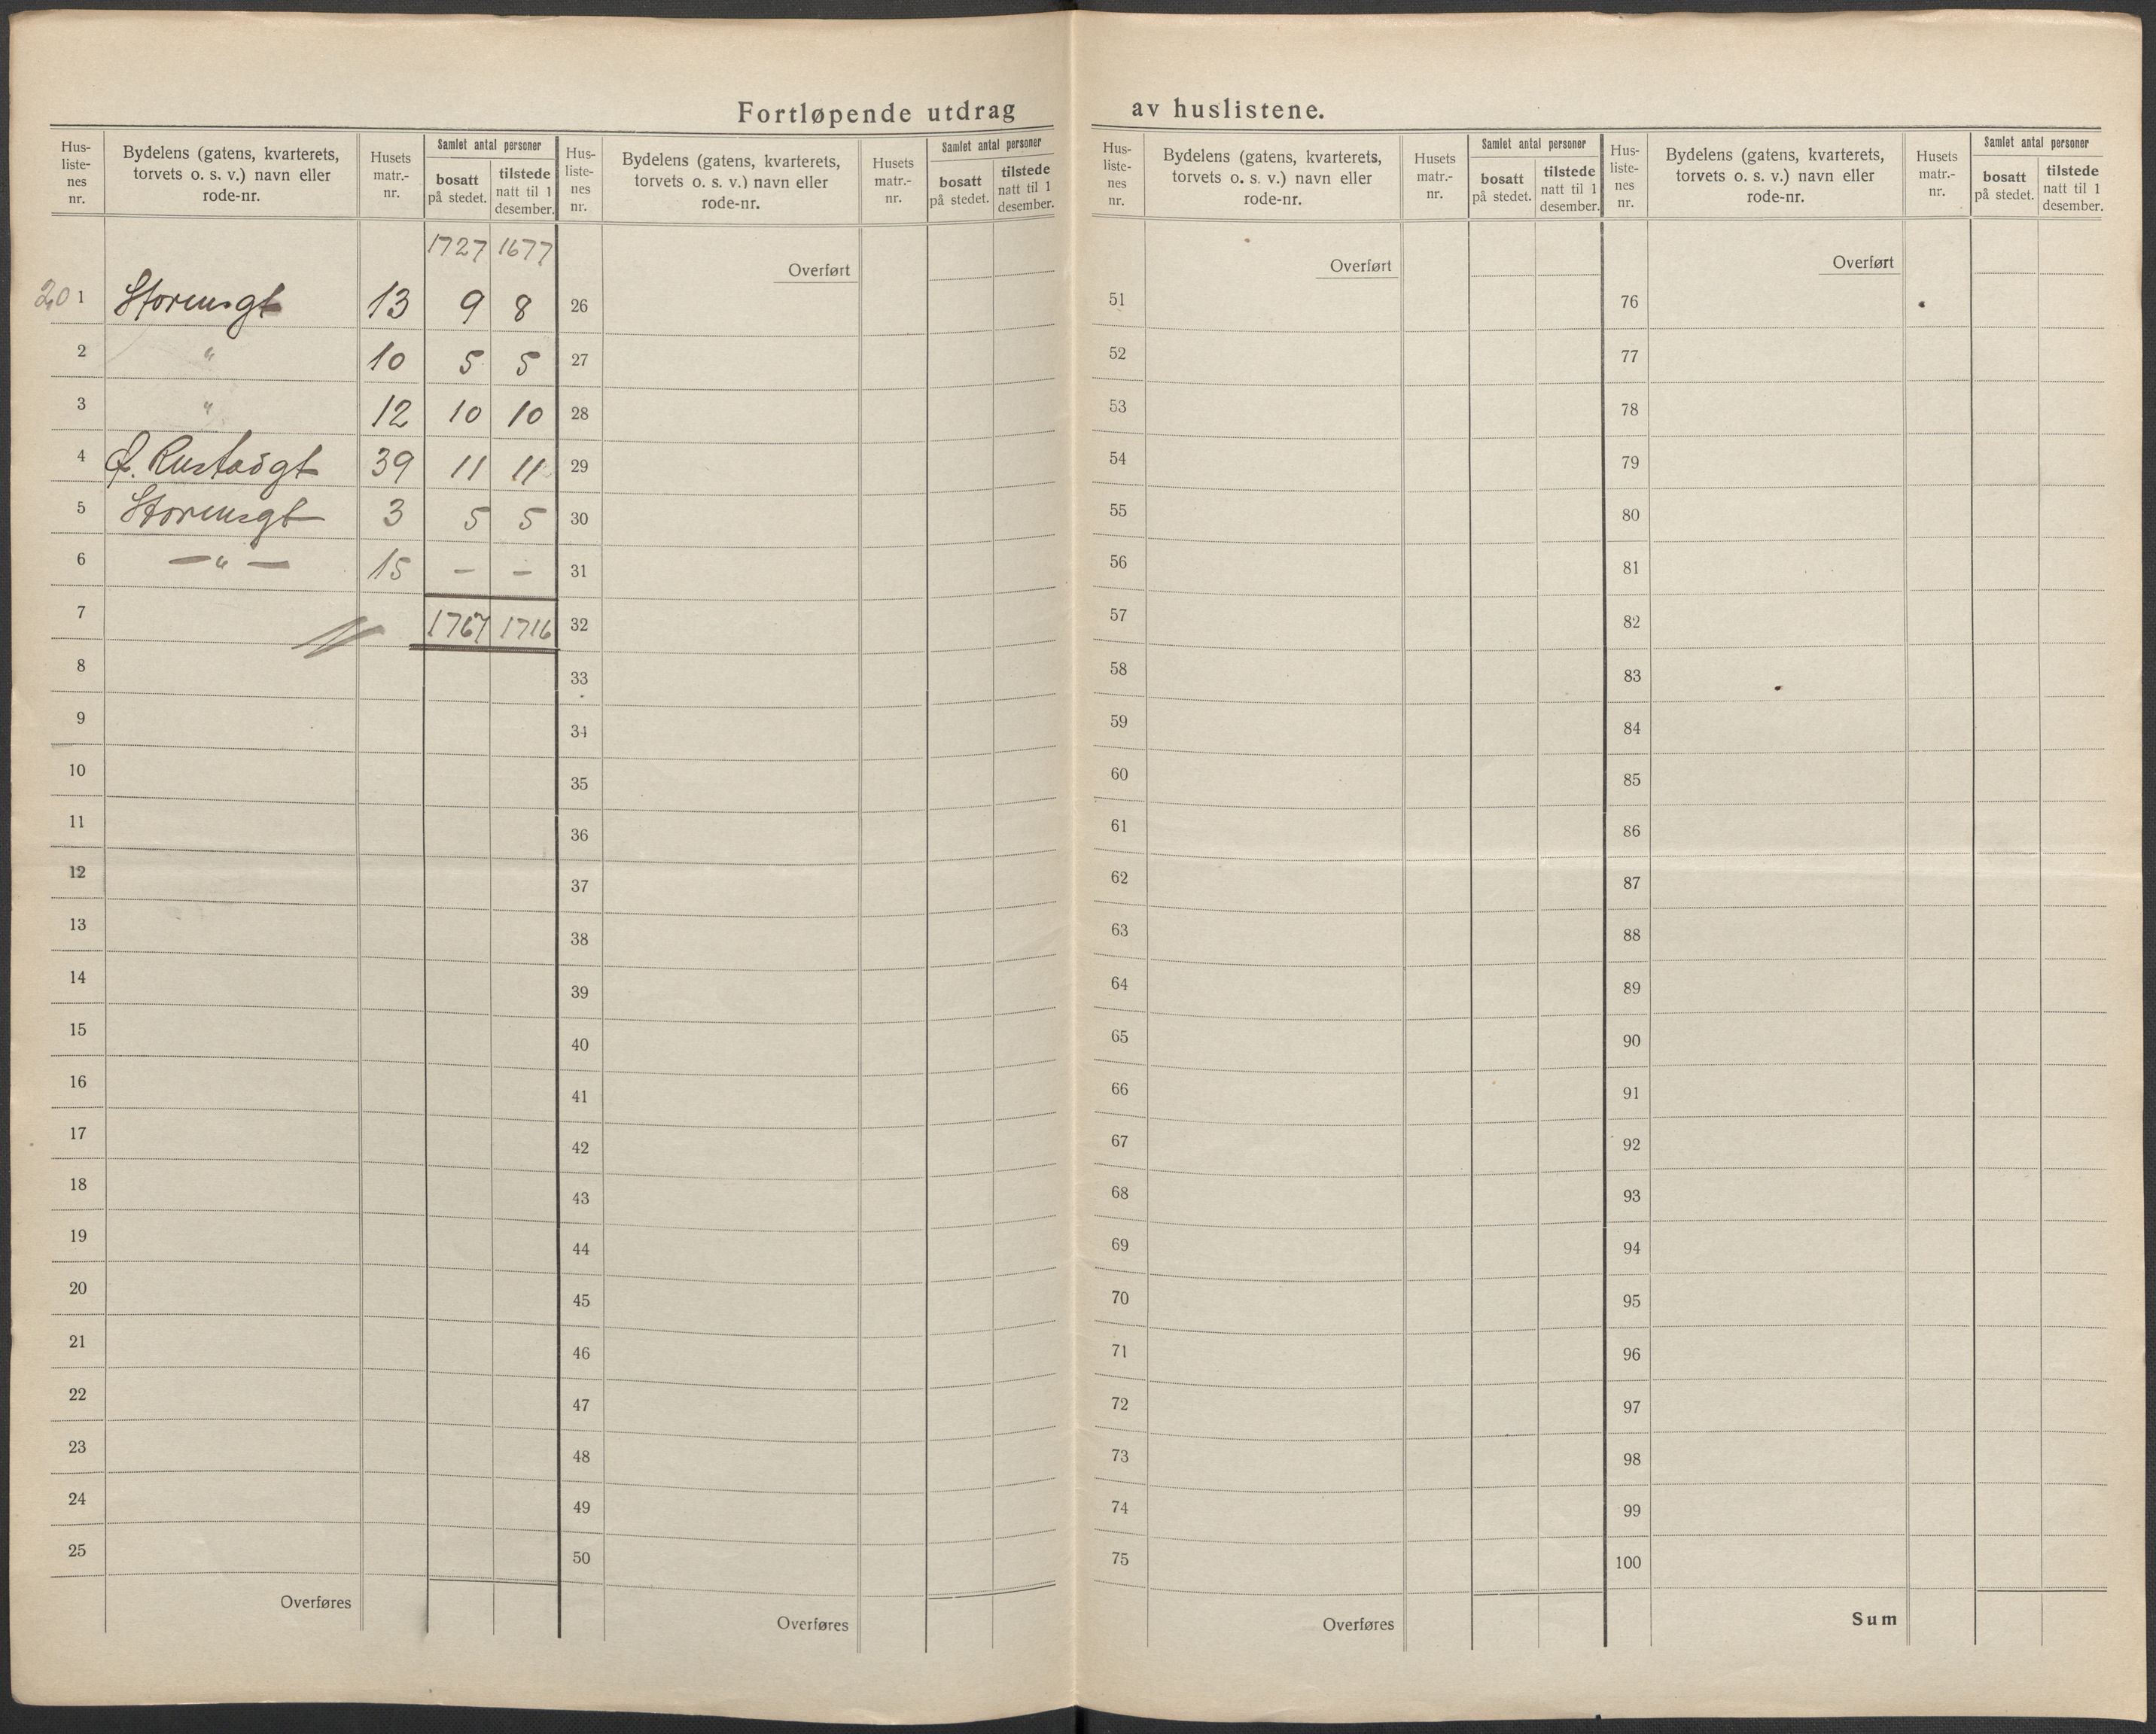 Fortløpende utdrag av huslistene.
Hus-liste-nes nr. | Bydelens (gatens, kvarterets, torvets o. s. v.) navn eller rode-nr. | Husets matr.-nr. | Samlet antal personer | bosatt på stedet. | tilstede natt til 1 desember.
Hus-liste-nes nr. | Bydelens (gatens, kvarterets, torvets o. s. v.) navn eller rode-nr. | Husets matr.-nr. | Samlet antal personer | bosatt på stedet. | tilstede natt til 1 desember.
Hus-liste-nes nr. | Bydelens (gatens, kvarterets, torvets o. s. v.) navn eller rode-nr. | Husets matr.-nr. | Samlet antal personer | bosatt på stedet. | tilstede natt til 1 desember.
Hus-liste-nes nr. | Bydelens (gatens, kvarterets, torvets o. s. v.) navn eller rode-nr. | Husets matr.-nr. | Samlet antal personer | bosatt på stedet. | tilstede natt til 1 desember.
1727 1677
201 13 9 8
2 " 10 5 5
3 " 12 10 10
4 39 11 11
5 3 5 5
6 — " — 15 – –
7 1767 1716
8
9
10
11
12
13
14
15
16
17
18
19
20
21
22
23
24
25
Overføres
Overført
26
27
28
29
30
31
32
33
34
35
36
37
38
39
40
41
42
43
44
45
46
47
48
49
50
Overføres
Overført
51
52
53
54
55
56
57
58
59
60
61
62
63
64
65
66
67
68
69
70
71
72
73
74
75
Overføres
Overført
76
77
78
79
80
81
82
83
84
85
86
87
88
89
90
91
92
93
94
95
96
97
98
99
100
Sum